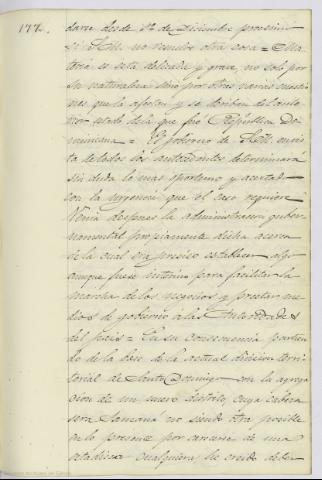 177.
darse desde 1º de Diciembre proximo
si S.M. no resuelve otra cosa = Ma-
teria es esta delicada y grave, no solo por
su naturaleza sino por otras varias cuestio-
nes que la afectan y se derivan del ante-
rior estado de la que fué República Do-
minicana = El gobierno de S.M. en vis-
ta de todos los antecedentes determinará
sin duda lo mas oportuno y acertado
con la urgencia que el caso requiere
Venia despues la administracion guber-
namental propiamente dicha acerca
de la cual era preciso establecer algo
aunque fuese interino para facilitar la
marcha de los negocios y prestar me-
dios de gobierno á las Autoridades
del pais = En su consecuencia partien-
do de la base de la actual division terri-
torial de Santo Domingo con la agrega-
cion de un nuevo distrito cuya cabeza
será Samaná no siendo otra posible
en lo presente por carecer de una
estadística cualquiera he creido deber